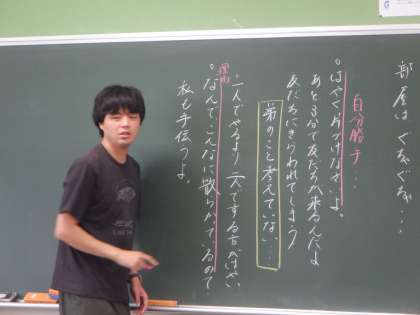 部屋は ぐちゃぐちゃ…
自分勝手…
。はやく片づけなさいよ。
あと少しで友だちが来るんだよ
友だちにきらわれてしまう
弟のこと考えていない…
理由
一人でやるより二人でする方がはやい
。なんでこんなに散らかっているの?
私も手伝うよ。